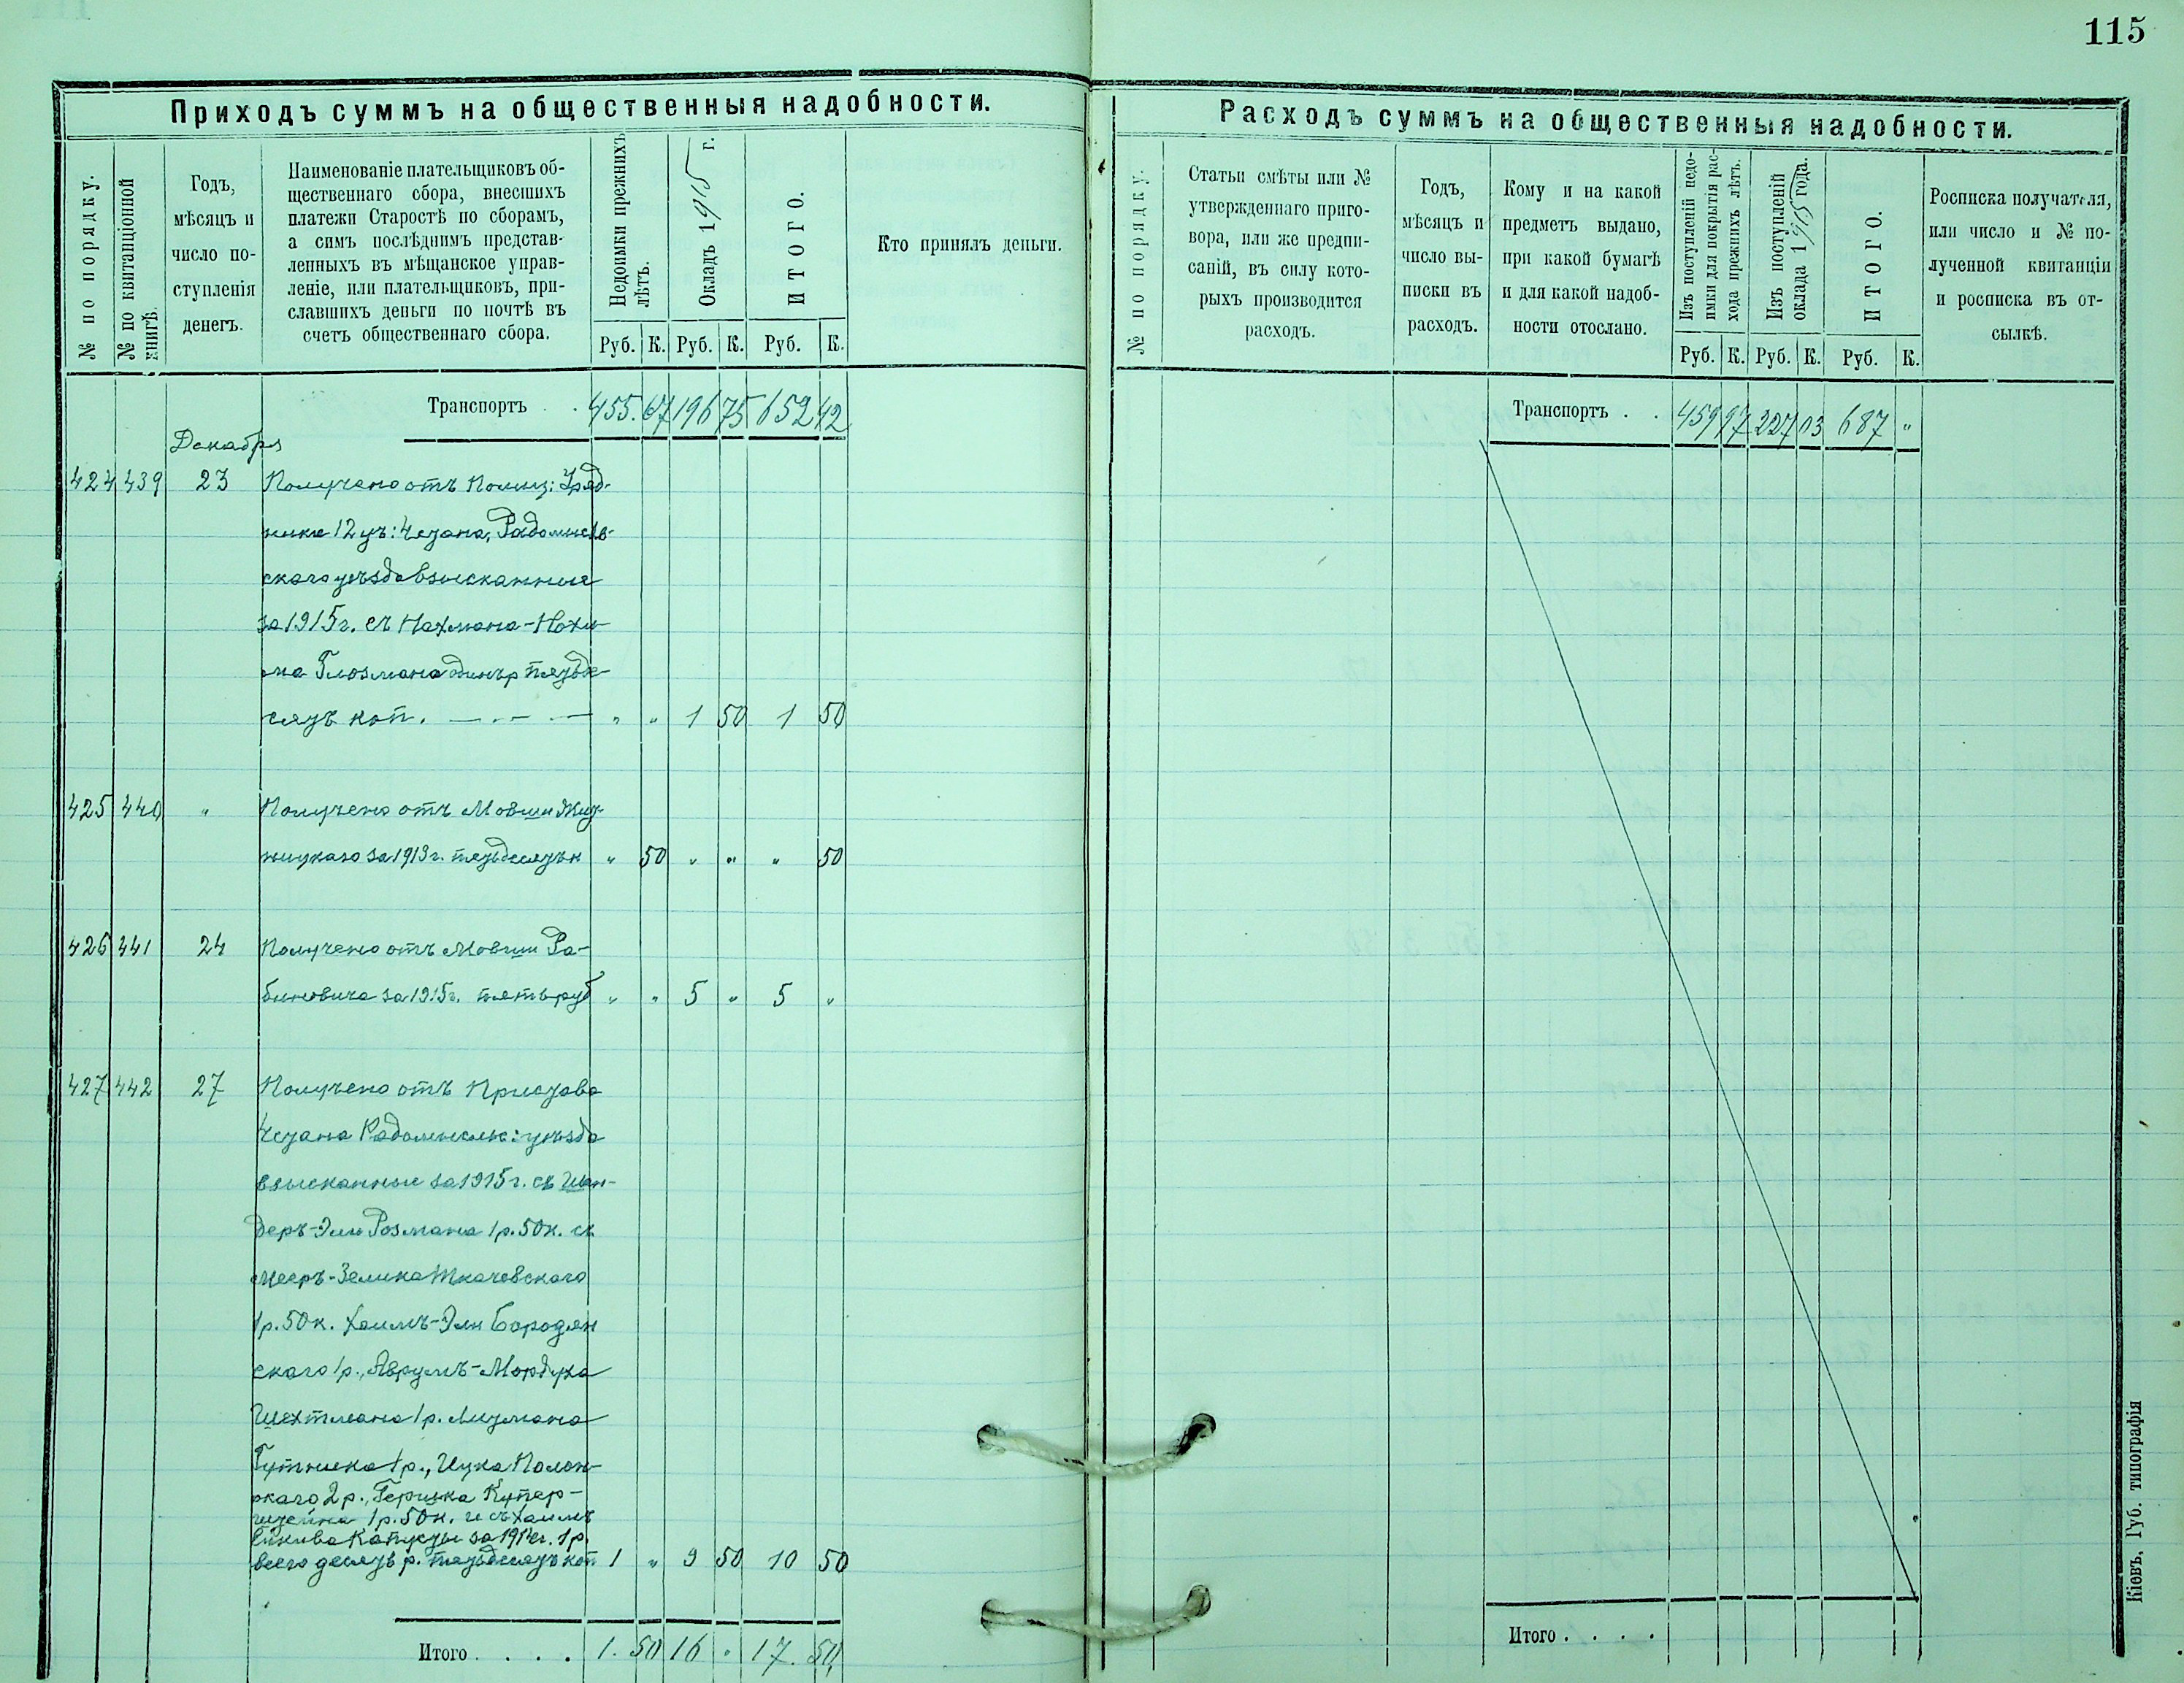 115
Приходъ суммъ на общественныя надобности.
№ по порядку.
№ по квитанціонной книгѣ.
Годъ,
мѣсяцъ и
число по-
ступленія
денегъ.
Наименованіе плательщиковъ об-
щественнаго сбора, внесшихъ
платежи Старостѣ по сборамъ,
а симъ послѣднимъ представ-
ленныхъ въ мѣщанское управ-
леніе, или плательщиковъ, при-
славшихъ деньги по почтѣ въ
счетъ общественнаго сбора.
Недоимки прежнихъ лѣтъ.
Окладъ 1915 г.
ИТОГО.
Руб. К. Руб. К. Руб. К.
Кто принялъ деньги.
Транспортъ . . 455. 67 196 75 652 42
Декабря
424 439 23 Получено отъ Полиц: Уряд-
ника 12 уч: 4 стана, Радомысль-
скаго уѣзда взысканные
за 1915 г. съ Нахмана-Нохи-
ма Глозмана одинъ р. пятьде-
сятъ коп. — . — . — " " 1 50 1 50
425 440 " Получено отъ Мовши Жит-
ницкаго за 1913 г. пятьдесятъ к " 50 " " " 50
426 441 24 Получено отъ Мовши Ра-
биновича за 1915 г. пять руб " " 5 " 5 "
427 442 27 Получено отъ Пристава
4 стана Радомысльс: уѣзда
взысканные за 1915 г. съ Шен-
деръ-Эли Розмана 1 р. 50 к. съ
Мееръ-Зелика Ткачевскаго
1 р. 50 к. Хаимъ-Эли Бородян
скаго 1 р., Аврумъ-Мордуха
Шехтмана 1 р. Лузмана
Гутника 1 р., Ицка Полон-
скаго 2 р., Гершка Купер-
штейна 1 р. 50 к. и съ Хаимъ
Капусты за 1914 г. 1 р.
всего десять р. пятьдесятъ коп 1 " 9 50 10 50
Итого . . . . 1. 50 16 " 17. 50
Расходъ суммъ на общественныя надобности.
№ по порядку.
Статьи смѣты или №
утвержденнаго приго-
вора, или же предпи-
саній, въ силу кото-
рыхъ производится
расходъ.
Годъ,
мѣсяцъ и
число вы-
писки въ
расходъ.
Кому и на какой
предметъ выдано,
при какой бумагѣ
и для какой надоб-
ности отослано.
Изъ поступленій недо-
имки для покрытія рас-
хода прежнихъ лѣтъ.
Изъ поступленій
оклада 1915 года.
ИТОГО.
Руб. К. Руб. К. Руб. К.
Росписка получателя,
или число и № по-
лученной квитанціи
и росписка въ от-
сылкѣ.
Транспортъ . . 459 97 227 03 687 "
Итого . . . .
Кіевъ, Губ. типографія